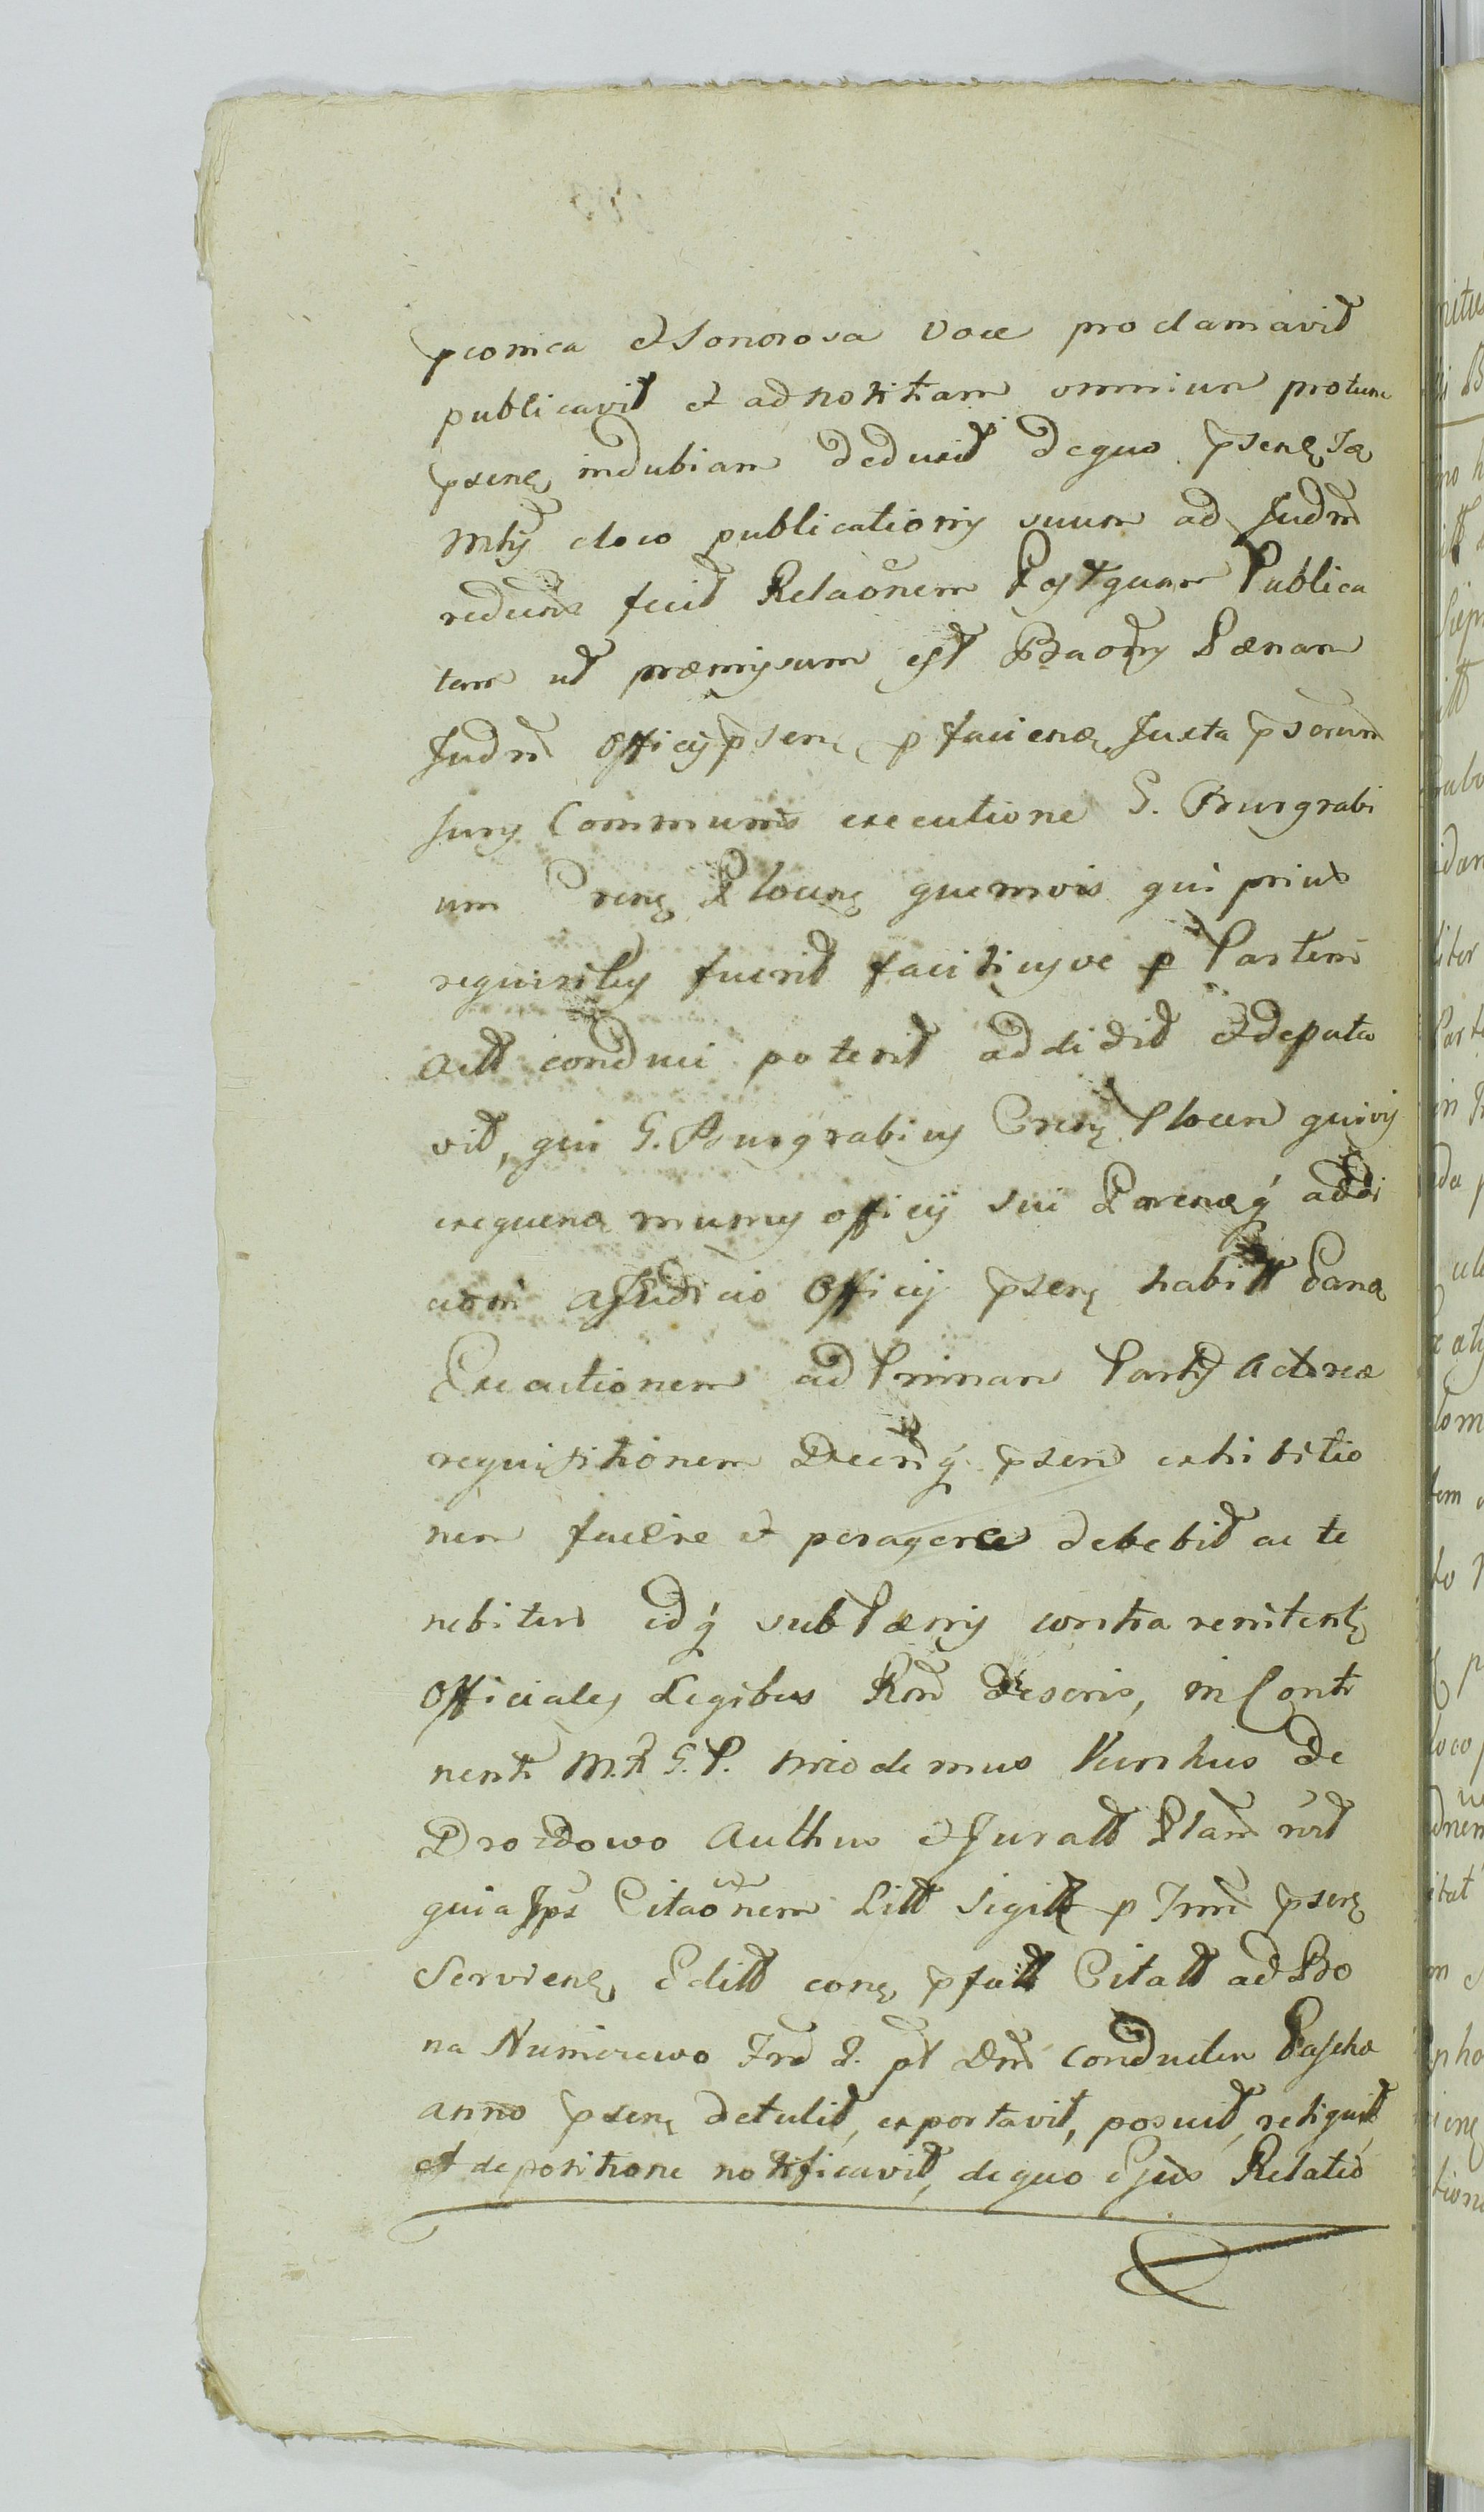 pconica et sonorosa voce proclamavit
publicavit et ad notitiam omnium protunc
psenę indubiam deduxit dequo psenę Ja
Mtis eloco publicationis suum ad Judm
rediens fecit Relaõnem Postquam Publica
tam ut præmissum est Baoñis Pœnam
Judm Officij psenę p faciena Juxta psorum
Juris Communis executione G. Burgrabi
um Crenę Plocenę quemvis qui prius
requisitus fuerit faciliusve p Partem
Actt conduci poterit addidit et deputa
vit, qui G. Burgrabius Crenę Plocen quivis
exequena munus officij sui Parenaq́ addi
cõni a Judicio Officij psenę habitt Bana
Executionem ad Primam Partis Actoreæ
requisitionem Decriq́ psen exhibitio
nem facere et peragere debebit ac te
nebitur idq́ sub Pænis contra renitentę
Officiales Legibus Rñi descris, in Conti
nenti M. R. G. P. Nicodemus Kunkus de
Drozdowo Authus et Juratt Plam rñt
quia Ips Citaõnem Litt Sigitt p Irmi psenę
Servienę Editt conę pfatt Citatt ad Bo
na Numirewo Frd 2. pt Dm Conductu Pascha
anno psenę detulit, exportavit, posuit, reliquit,
et de positione notificavit, dequo Ejus Relatio